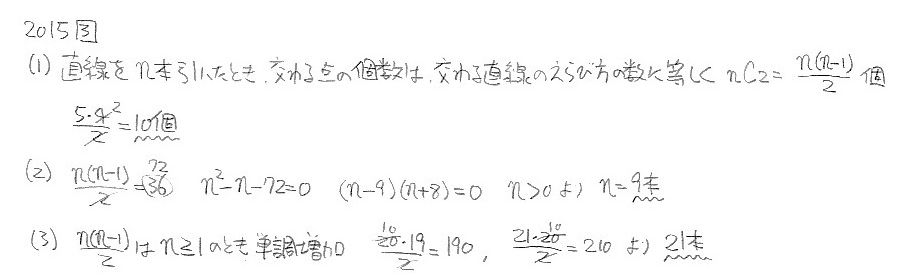 2015 ③
(1) 直線をn本引いたとき、交わる点の個数は、交わる直線のえらび方の数に等しく nC2 = n(n-1)/2 個
5・4/2 = 10個
(2) n(n-1)/2 = 36 n²-n-72=0 (n-9)(n+8)=0 n>0より n=9本
(3) n(n-1)/2 は n≧1のとき単調増加 20・19/2 = 190, 21・20/2 = 210 より 21本